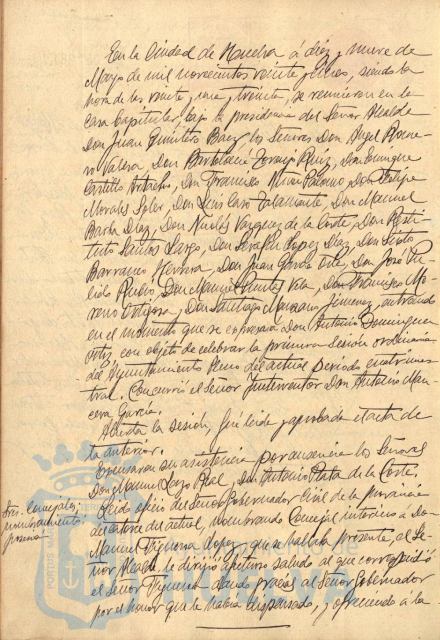 En la Ciudad de Huelva á diez y nueve de
Mayo de mil novecientos veinte y cinco, siendo la
hora de las veinte y una y treinta, se reunieron en la
casa Capitular, bajo la presidencia del Señor Alcalde
Don Juan Quintero Baez, los Señores Don Angel Rome-
ro Valera, Don Bartolomé Toronjo Ruiz, Don Enrique
Castillo, Don Francisco Vivas Palomo, Don Felipe
Morales Soler, Don Luis Caro Talamante, Don Manuel
Barba Diaz, Don Nicolás Vazquez de la Corte, Don Resti-
tuto Santos Lazo, Don Serafin Lopez Diaz, Don Sixto
Barranco Herrera, Don Juan Garcia, Don José Pu-
lido Rubio, Don Manuel Fuentes Vela, Don Francisco Mo-
reno Ortega y Don Santiago Manzano Jimenez, entrando
en el momento que se expresará Don Antonio Dominguez
Ortiz, con objeto de celebrar la primera sesión ordinaria
del Ayuntamiento Pleno del actual período cuatrimes-
tral. Concurrió el Señor Interventor Don Antonio Man-
cera Garcia.
Abierta la sesión, fué leida y aprobada el acta de
la anterior.
Excusaron su asistencia por ausencia los Señores
Don Manuel Lazo Real y Don Antonio Plata de la Corte.
Sres. Concejales,
nombramiento,
Leido oficio del Señor Gobernador Civil de la provincia
de catorce del actual, nombrando Concejal interino á Don
Manuel Figueroa Lopez, que se hallaba presente, el Se-
ñor Alcalde le dirigió afectuoso saludo al que correspondió
el Señor Figueroa dando gracias al Señor Gobernador
por el honor que le habia dispensado, y ofreciendo á la